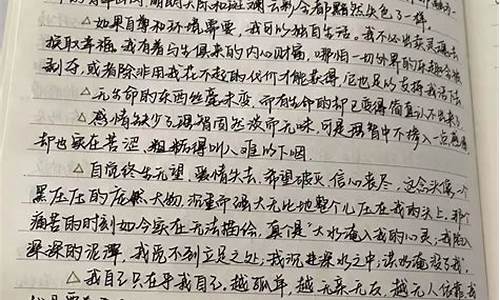 晴朗的天际和斑斓云彩全都黯然失色了一样。
△如果自尊和环境需要,我可以独自生活。我不必出卖灵魂去
换取幸福。我有着与生俱来的内心财富,哪怕一切外界的乐趣全被
剥夺,或者除非用我付不起的代价才能获得,它也足以支持我活下去。
△无生命的东西丝毫未变,而有生命的却已变得简直认不出来了
△感情缺少了理智固然淡而无味,可是理智中不掺入一点感情
却也实在苦涩、粗糙得叫人难以下咽。
△自觉终生无望,爱情失去,希望破灭,信心丧尽,这念头像一个
黑压压的庞然大物,沉重而强大无比地整个儿压在我的头上,那个
痛苦的时刻如今实在无法描绘,真个是"大水淹入我的心灵,我陷入
深深的泥潭,我觅不到立足之处;我沉进深水之中;洪水淹没了我。
△我自己只在乎我自己,越孤单,越无亲无友,越无人依靠,我